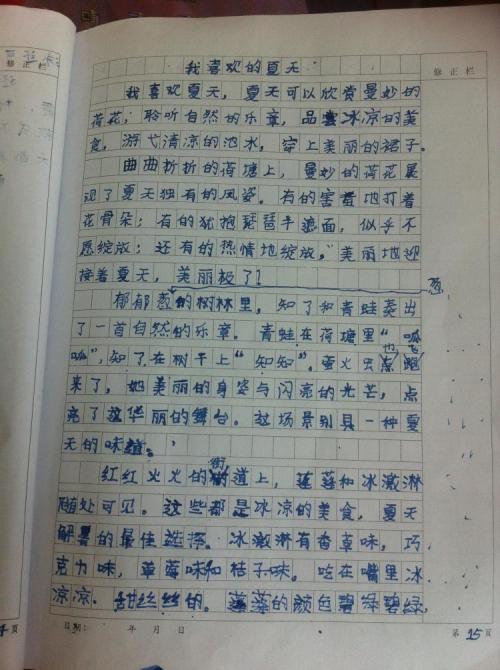 修正栏
修正栏
我喜欢的夏天
我喜欢夏天，夏天可以欣赏曼妙的
荷花，聆听自然的乐章，品尝冰凉的美
食，游弋清凉的池水，穿上美丽的裙子。
曲曲折折的荷塘上，曼妙的荷花展
现了夏天独有的风姿。有的害羞地打着
花骨朵；有的犹抱琵琶半遮面，似乎不
愿绽放；还有的热情地绽放，美丽地迎
接着夏天，美丽极了！
葱
郁郁葱的树林里，知了和青蛙奏出
了一首自然的乐章。青蛙在荷塘里“呱
呱”，知了在树干上“知知”。萤火虫也飞
来了，她美丽的身姿与闪亮的光芒，点
亮了这华丽的舞台。这场景别具一种夏
天的味道。
红红火火的街道上，莲蓬和冰激淋
随处可见。这些都是冰凉的美食，夏天
解暑的最佳选择。冰激淋有香草味，巧
克力味，草莓味和桔子味。吃在嘴里冰
凉凉，甜丝丝的。莲蓬的颜色碧绿碧绿，
日期： 年 月 日
第15页
页